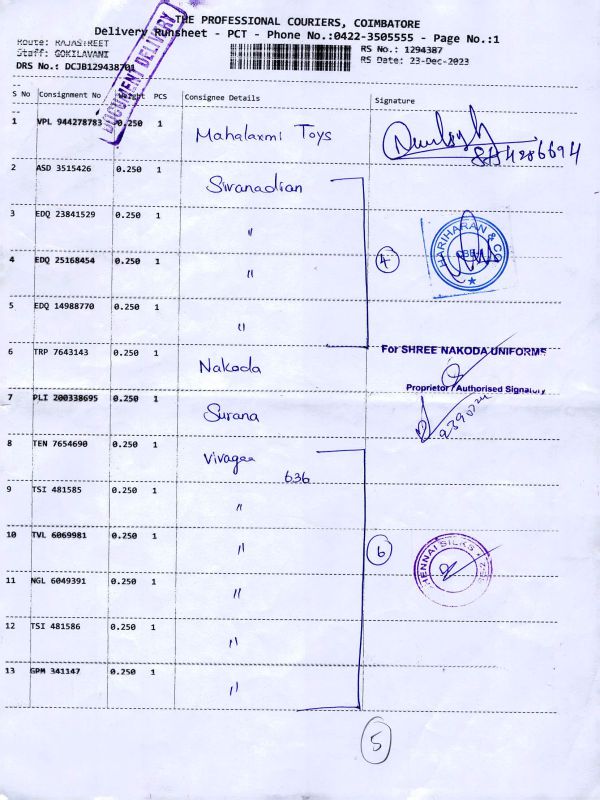 THE PROFESSIONAL COURIERS, COIMBATORE
Delivery Runsheet - PCT - Phone No.:0422-3505555 - Page No.:1
Route: RAJASTREET
Staff: GOKILAVANI
DRS No.: DCJB129438701
RS No.: 1294387
RS Date: 23-Dec-2023
DOCUMENT DELIVERY
S No Consignment No Weight PCS Consignee Details Signature
1 VPL 944278783 0.250 1 Mahalaxmi Toys
8A4286694
2 ASD 3515426 0.250 1 Sivanadian
3 EDQ 23841529 0.250 1 "
HARIHARAN & CO
CBE
4 EDQ 25168454 0.250 1 " 4
5 EDQ 14988770 0.250 1 "
6 TRP 7643143 0.250 1 Nakoda
For SHREE NAKODA UNIFORMS
Proprietor / Authorised Signatory
7 PLI 200338695 0.250 1 Surana
8 TEN 7654690 0.250 1 Vivagaa
636
9 TSI 481585 0.250 1 "
10 TVL 6069981 0.250 1 " 6
CHENNAI SILKS
11 NGL 6049391 0.250 1 "
12 TSI 481586 0.250 1 "
13 GPM 341147 0.250 1 "
5